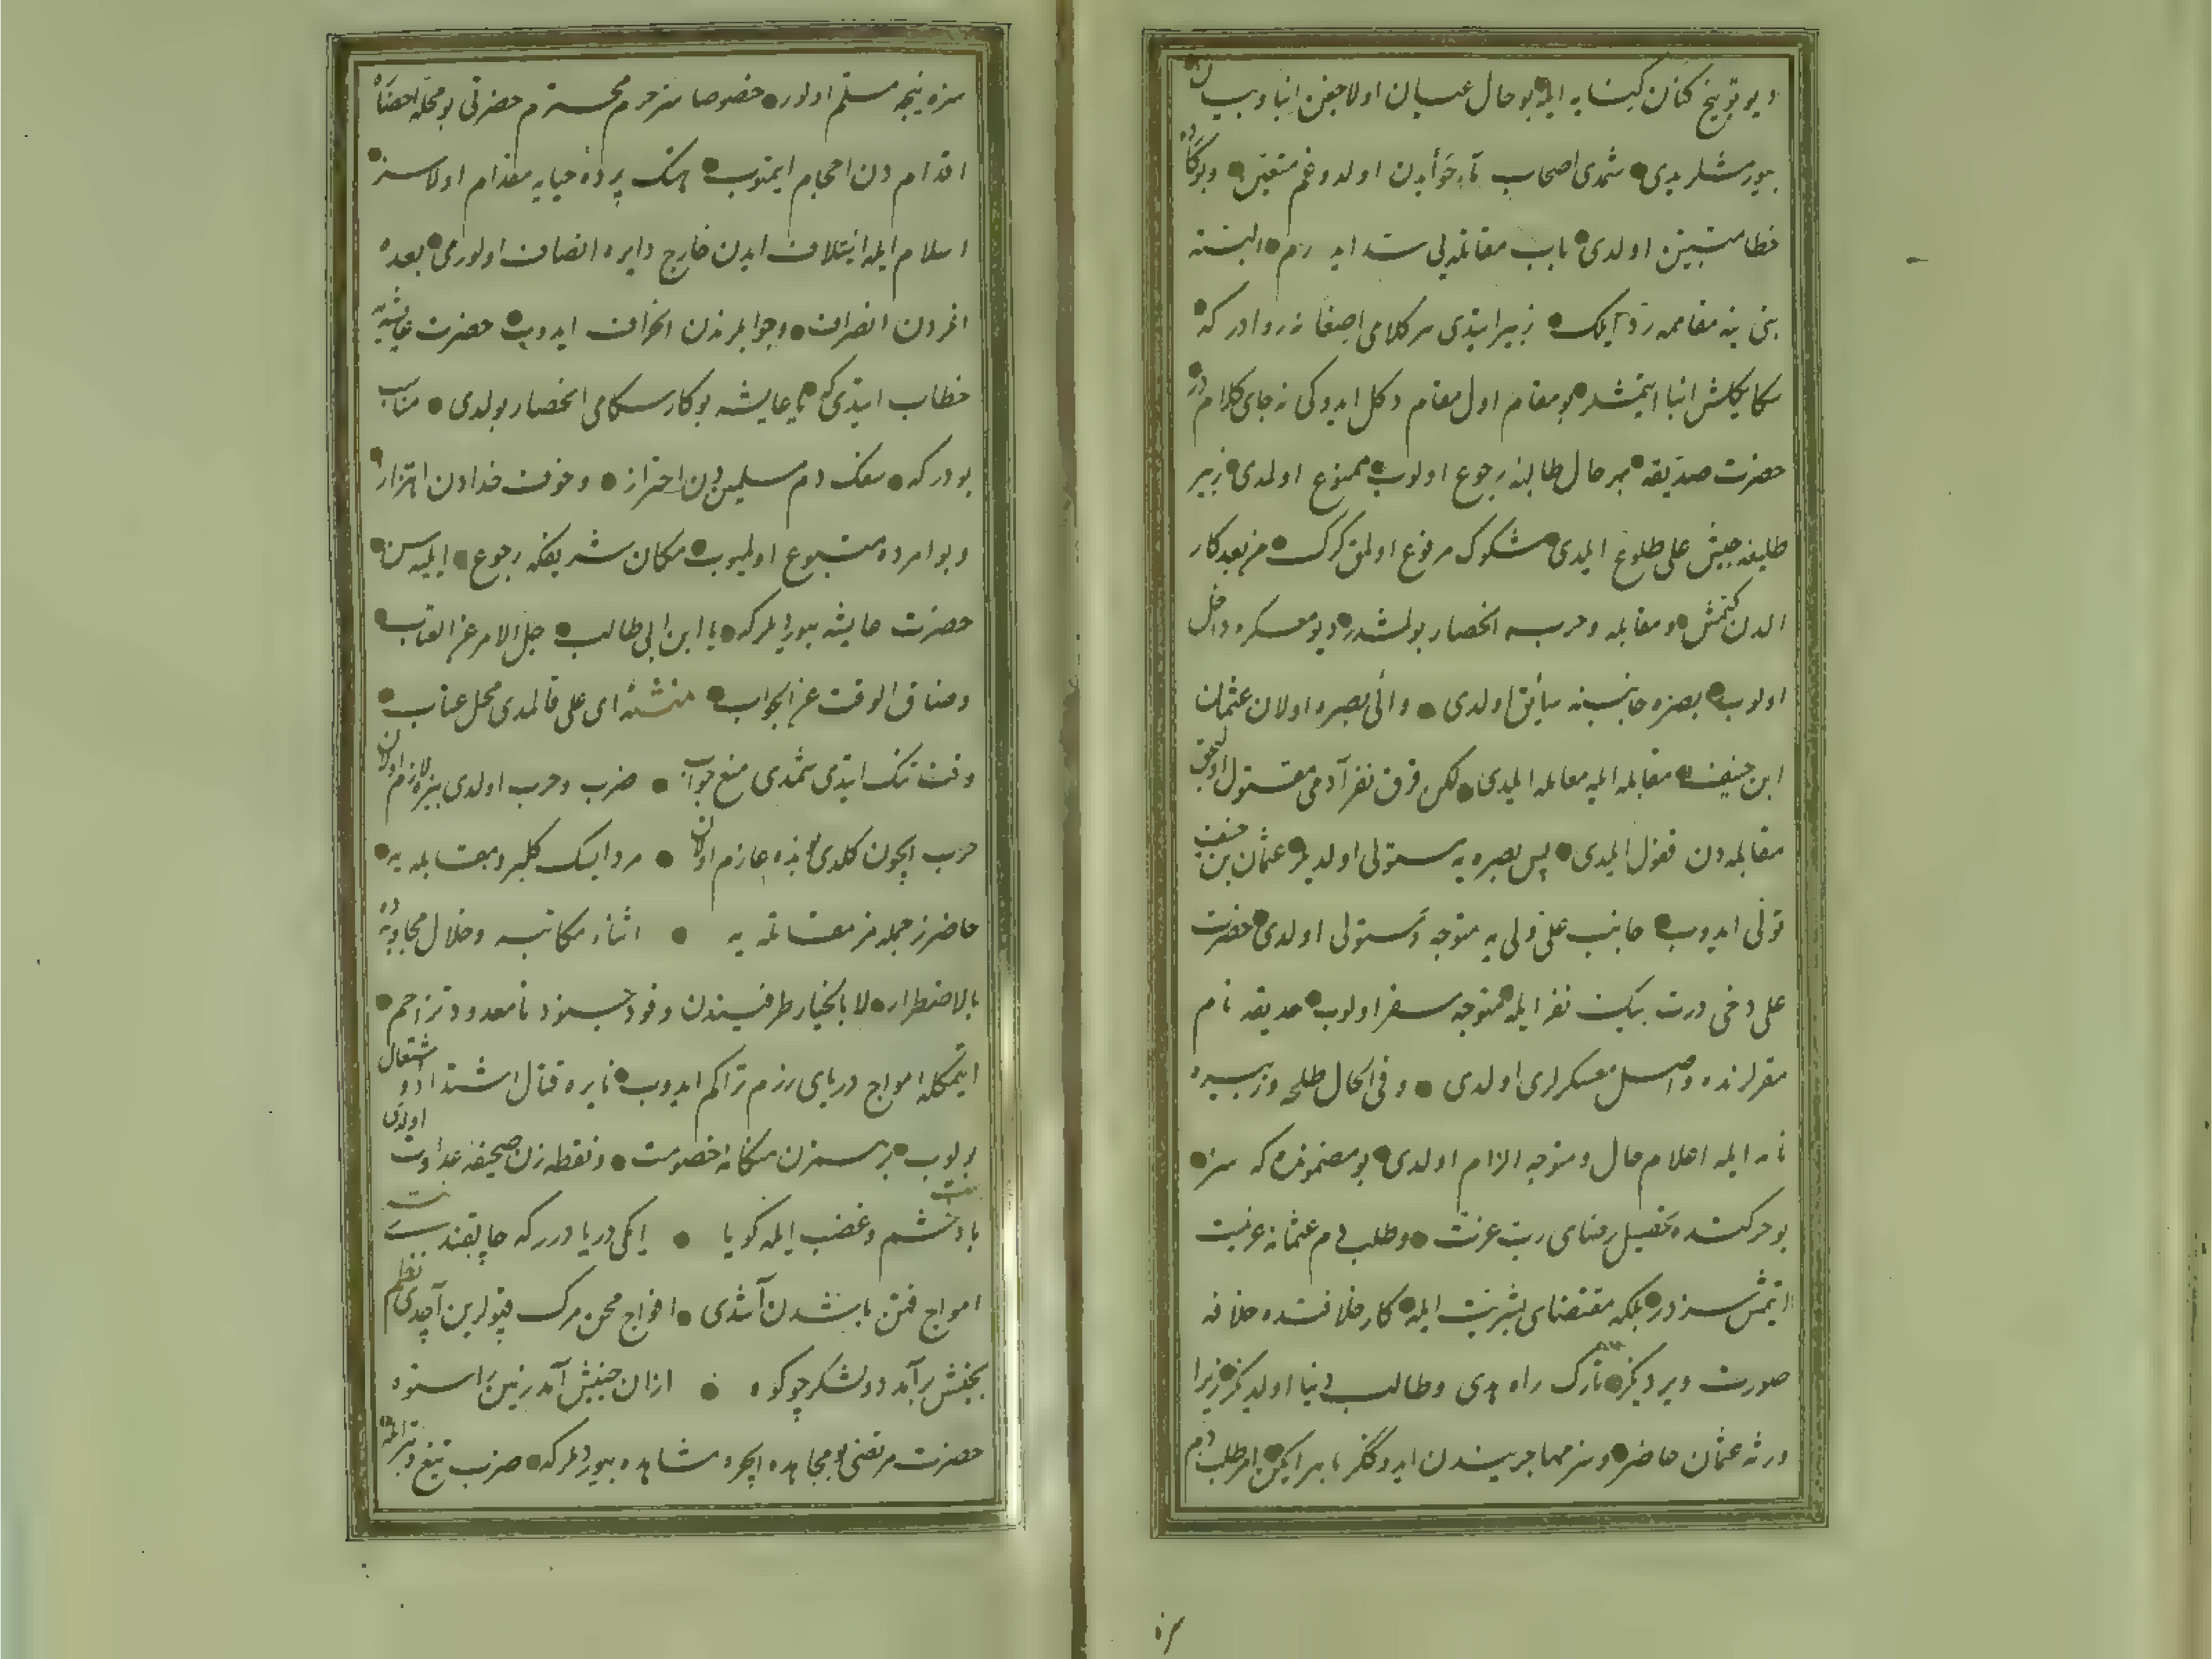 ديو توبيخ كنان كنايه ايله بو حال عيان اولاجغن انبا و بيان
بيورمشلر يدى شمدى اصحاب حوأبدن اولدوغم متعين و بو كار
خطا مبين اولدى باب مقاتله يى سد ايدرم البته
بنى ينه مقاممه رد ايلك زبير ايتدى هر كلامى اصغا نه روادر كه
سكا يكلش انبا ايتمشلر بو مقام اول مقام دكل ايدوكى نه جاى كلامدر
حضرت صديقه بهر حال طالبه رجوع اولوب ممنوع اولمدى زبير
طليعه جيش على طلوع ايلدى شكوك مرفوع اولمق كرك من بعد كار
الدن كتمش و مقابله و حربه انحصار بولمشدر ديو معسكره داخل
اولوب بصره جانبينه سابق اولدى والئ بصره اولان عثمان
ابن حنيف مقابله ايله معامله ايلدى لكن قرق نفر آدمى مقتول اولمغن
مقابله دن نكول ايلدى پس بصره يه مستولى اولديلر عثمان بن حنيف
تولى ايدوب جانب على ولى يه متوجه و مستولى اولدى حضرت
على دخى درت بيك نفر ايله متوجه سفر اولوب حديقه نام
مقرلرنده واصل معسكرلرى اولدى و فى الحال طلحه و زبيره
نامه ايله اعلام حال و متوجه الزام اولدى بو مضمونده كه سز
بو حركتده تحصيل رضاى رب عزت و طلب دم عثمانه عزيمت
ايتمش سزدر بلكه مقتضاى بشريت ايله كار خلافتده خلافه
صورت ويرديكز تارك راه هدى و طالب دنيا اولديكز زيرا
ورثه عثمان حاضر و سز مهاجريندن ايدوككز باهر ايكن امر طلب دم
سزه نيجه مسلم اولور خصوصا سز حرم محترم حضرتى بو محله احضاره
اقدام دن احجام ايتميوب هتك پرده حيايه مقدام اولاسز
اسلام ايله ايتلاف ايدن خارج دايره انصاف اولورمى بعده
انلردن انصراف و جوابلرندن انحراف ايدوب حضرت عايشه يه
خطاب ايتدى كه يا عايشه بو كار سكامى انحصار بولدى مناسب
بودر كه سفك دم مسلميندن احتراز و خوف خدادن اهتزاز
و بو امرده متبوع اولميوب مكان شريفكه رجوع ايليه سن
حضرت عايشه بيورديلر كه يا ابن ابى طالب جل الامر عن العتاب
و ضاق الوقت عن الجواب منشئه اى على قالمدى محل عتاب
وقت تنك ايتدى شمدى منع جواب ضرب و حرب اولدى بزه لازم اولان
حرب ايچون كلدى بونده عازم اولان مرد ايسك كلبرو مقابله يه
حاضرز جمله مز مقاتله يه اثناء مكاتبه و خلال مجاوبه ده
بالاضطرار لا بالاختيار طرفيندن وفود جنود نامعدود تزاحم
ايتمكله امواج درياى رزم تراكم ايدوب نايره قتال اشتداد و اشتعال
بولوب برهمزن هنكامه خصومت و نقطه زن صحيفه عداوت اولدى
باد خشم و غضب ايله كويا بيت ايكى دريا درر كه چاپقندست
امواج فتن باشدن آشدى افواج محن مرك قپولرين آچدى نظم
بجنبش برآمد دو لشكر چو كوه ازان جنبش آمد زمين را ستوه
حضرت مرتضى بو مجاهده ايچره مشاهده بيورديلر كه ضرب تيغ و تبر ايله